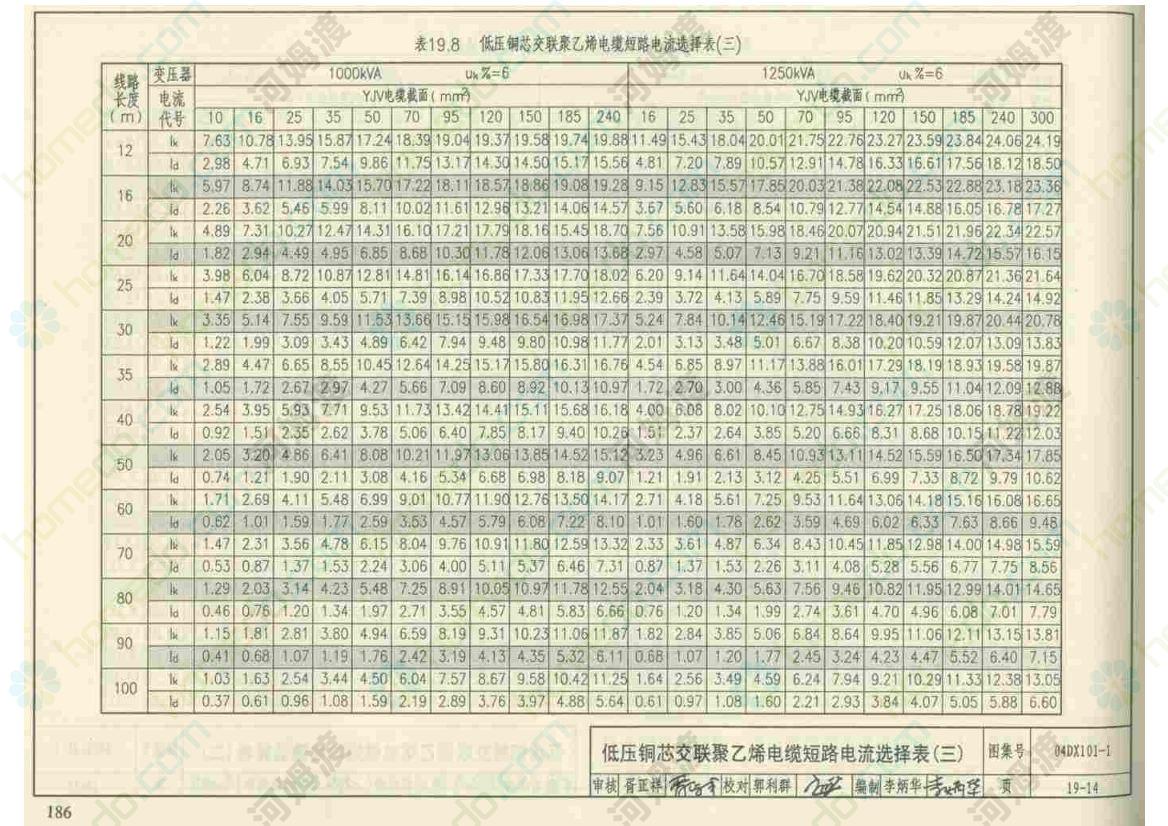 表19.8 低压铜芯交联聚乙烯电缆短路电流选择表(三)
线路长度(m) 变压器 1000kVA uk%=6 1250kVA uk%=6
电流代号 YJV电缆截面(mm²) YJV电缆截面(mm²)
10 16 25 35 50 70 95 120 150 185 240 16 25 35 50 70 95 120 150 185 240 300
12 Ik 7.63 10.78 13.95 15.87 17.24 18.39 19.04 19.37 19.58 19.74 19.88 11.49 15.43 18.04 20.01 21.75 22.76 23.27 23.59 23.84 24.06 24.19
Id 2.98 4.71 6.93 7.54 9.86 11.75 13.17 14.30 14.50 15.17 15.56 4.81 7.20 7.89 10.57 12.91 14.78 16.33 16.61 17.56 18.12 18.50
16 Ik 5.97 8.74 11.88 14.03 15.70 17.22 18.11 18.57 18.86 19.08 19.28 9.15 12.83 15.57 17.85 20.03 21.38 22.08 22.53 22.88 23.18 23.36
Id 2.26 3.62 5.46 5.99 8.11 10.02 11.61 12.96 13.21 14.06 14.57 3.67 5.60 6.18 8.54 10.79 12.77 14.54 14.88 16.05 16.78 17.27
20 Ik 4.89 7.31 10.27 12.47 14.31 16.10 17.21 17.79 18.16 15.45 18.70 7.56 10.91 13.58 15.98 18.46 20.07 20.94 21.51 21.96 22.34 22.57
Id 1.82 2.94 4.49 4.95 6.85 8.68 10.30 11.78 12.06 13.06 13.68 2.97 4.58 5.07 7.13 9.21 11.16 13.02 13.39 14.72 15.57 16.15
25 Ik 3.98 6.04 8.72 10.87 12.81 14.81 16.14 16.86 17.33 17.70 18.02 6.20 9.14 11.64 14.04 16.70 18.58 19.62 20.32 20.87 21.36 21.64
Id 1.47 2.38 3.66 4.05 5.71 7.39 8.98 10.52 10.83 11.95 12.66 2.39 3.72 4.13 5.89 7.75 9.59 11.46 11.85 13.29 14.24 14.92
30 Ik 3.35 5.14 7.55 9.59 11.53 13.66 15.15 15.98 16.54 16.98 17.37 5.24 7.84 10.14 12.46 15.19 17.22 18.40 19.21 19.87 20.44 20.78
Id 1.22 1.99 3.09 3.43 4.89 6.42 7.94 9.48 9.80 10.98 11.77 2.01 3.13 3.48 5.01 6.67 8.38 10.20 10.59 12.07 13.09 13.83
35 Ik 2.89 4.47 6.65 8.55 10.45 12.64 14.25 15.17 15.80 16.31 16.76 4.54 6.85 8.97 11.17 13.88 16.01 17.29 18.19 18.93 19.58 19.87
Id 1.05 1.72 2.67 2.97 4.27 5.66 7.09 8.60 8.92 10.13 10.97 1.72 2.70 3.00 4.36 5.85 7.43 9.17 9.55 11.04 12.09 12.88
40 Ik 2.54 3.95 5.93 7.71 9.53 11.73 13.42 14.41 15.11 15.68 16.18 4.00 6.08 8.02 10.10 12.75 14.93 16.27 17.25 18.06 18.78 19.22
Id 0.92 1.51 2.35 2.62 3.78 5.06 6.40 7.85 8.17 9.40 10.26 1.51 2.37 2.64 3.85 5.20 6.66 8.31 8.68 10.15 11.22 12.03
50 Ik 2.05 3.20 4.86 6.41 8.08 10.21 11.97 13.06 13.85 14.52 15.12 3.23 4.96 6.61 8.45 10.93 13.11 14.52 15.59 16.50 17.34 17.85
Id 0.74 1.21 1.90 2.11 3.08 4.16 5.34 6.68 6.98 8.18 9.07 1.21 1.91 2.13 3.12 4.25 5.51 6.99 7.33 8.72 9.79 10.62
60 Ik 1.71 2.69 4.11 5.48 6.99 9.01 10.77 11.90 12.76 13.50 14.17 2.71 4.18 5.61 7.25 9.53 11.64 13.06 14.18 15.16 16.08 16.65
Id 0.62 1.01 1.59 1.77 2.59 3.53 4.57 5.79 6.08 7.22 8.10 1.01 1.60 1.78 2.62 3.59 4.69 6.02 6.33 7.63 8.66 9.48
70 Ik 1.47 2.31 3.56 4.78 6.15 8.04 9.76 10.91 11.80 12.59 13.32 2.33 3.61 4.87 6.34 8.43 10.45 11.85 12.98 14.00 14.98 15.59
Id 0.53 0.87 1.37 1.53 2.24 3.06 4.00 5.11 5.37 6.46 7.31 0.87 1.37 1.53 2.26 3.11 4.08 5.28 5.56 6.77 7.75 8.56
80 Ik 1.29 2.03 3.14 4.23 5.48 7.25 8.91 10.05 10.97 11.78 12.55 2.04 3.18 4.30 5.63 7.56 9.46 10.82 11.95 12.99 14.01 14.65
Id 0.46 0.76 1.20 1.34 1.97 2.71 3.55 4.57 4.81 5.83 6.66 0.76 1.20 1.34 1.99 2.74 3.61 4.70 4.96 6.08 7.01 7.79
90 Ik 1.15 1.81 2.81 3.80 4.94 6.59 8.19 9.31 10.23 11.06 11.87 1.82 2.84 3.85 5.06 6.84 8.64 9.95 11.06 12.11 13.15 13.81
Id 0.41 0.68 1.07 1.19 1.76 2.42 3.19 4.13 4.35 5.32 6.11 0.68 1.07 1.20 1.77 2.45 3.24 4.23 4.47 5.52 6.40 7.15
100 Ik 1.03 1.63 2.54 3.44 4.50 6.04 7.57 8.67 9.58 10.42 11.25 1.64 2.56 3.49 4.59 6.24 7.94 9.21 10.29 11.33 12.38 13.05
Id 0.37 0.61 0.96 1.08 1.59 2.19 2.89 3.76 3.97 4.88 5.64 0.61 0.97 1.08 1.60 2.21 2.93 3.84 4.07 5.05 5.88 6.60
低压铜芯交联聚乙烯电缆短路电流选择表(三) 图集号 04DX101-1
审核 胥正祥 校对 郭利群 编制 李炳华 页 19-14
186